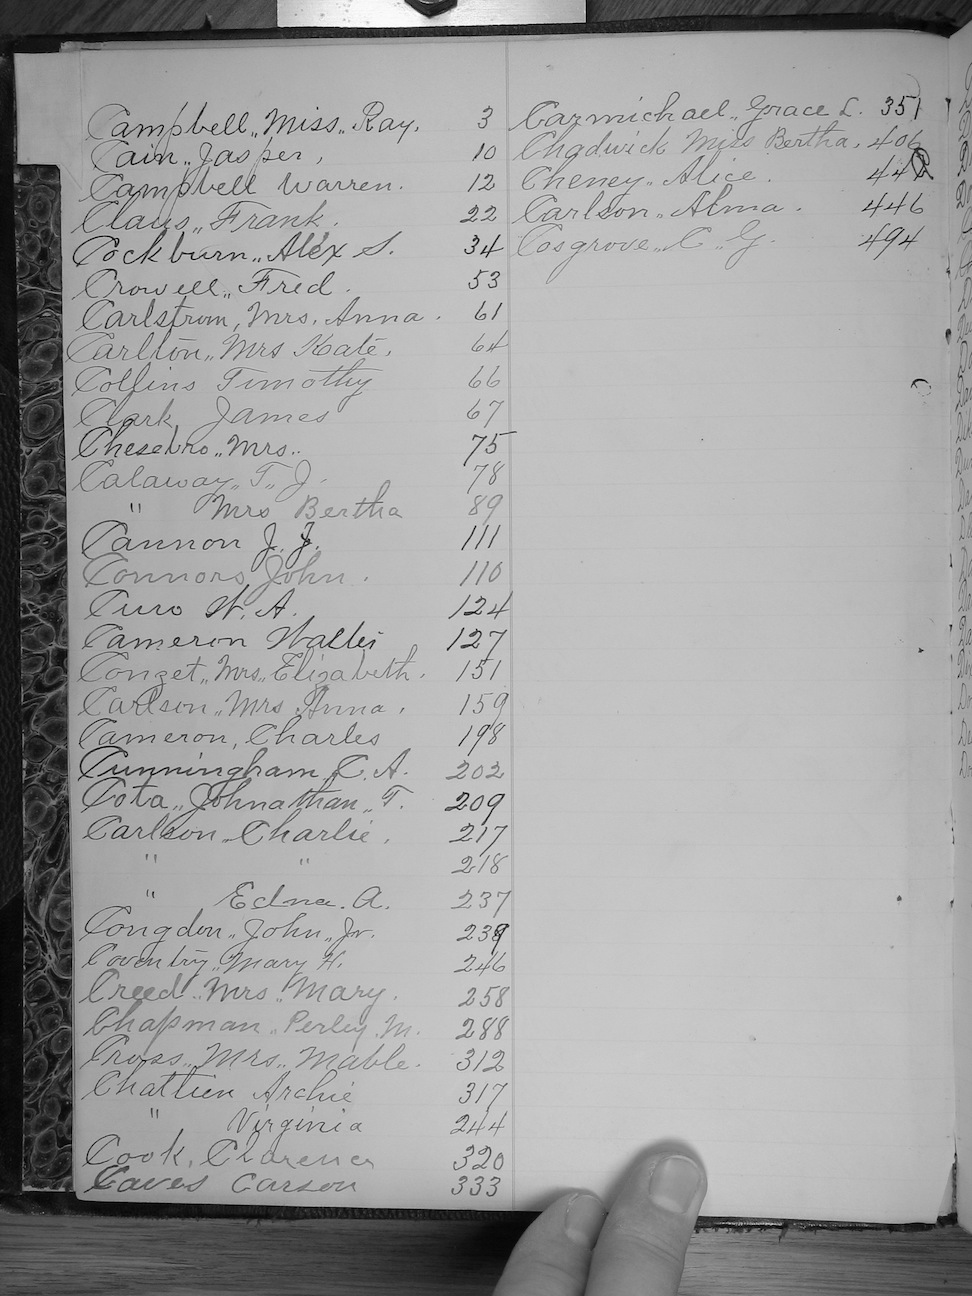 Campbell,, Miss,, Ray. 3
Cain,, Jasper, 10
Campbell Warren. 12
Claus,, Frank. 22
Cockburn,, Alex S. 34
Crowell,, Fred. 53
Carlstrom, Mrs. Anna. 61
Carlton,, Mrs Kate. 64
Collins Timothy 66
Clark, James 67
Chesebro,, Mrs.. 75
Calaway,, T,, J. 78
" Mrs Bertha 89
Cannon J. J. 111
Connors, John. 110
W. A. 124
Cameron 127
Conzet,, Mrs,, Elizabeth. 151
Carlson,, Mrs Anna. 159
Cameron, Charles 198
Cunningham, C. A. 202
Cota,, Johnathan,, T. 209
Carlson,, Charlie. 217
" " 218
" Edna. A. 237
Congdon,, John,, Jr. 239
Coventry,, Mary H. 246
Creed,, Mrs,, Mary. 258
Chapman,, Perley. M. 288
Cross,, Mrs,, Mable. 312
Chattien Archie 317
" Virginia 244
Cook, Clarence 320
Caves Carson 333
Carmichael,, Grace L. 351
Chadwick Miss Bertha. 406
Cheney,, Alice.
Carlson,, Alma. 446
Cosgrove,, C,, G. 494